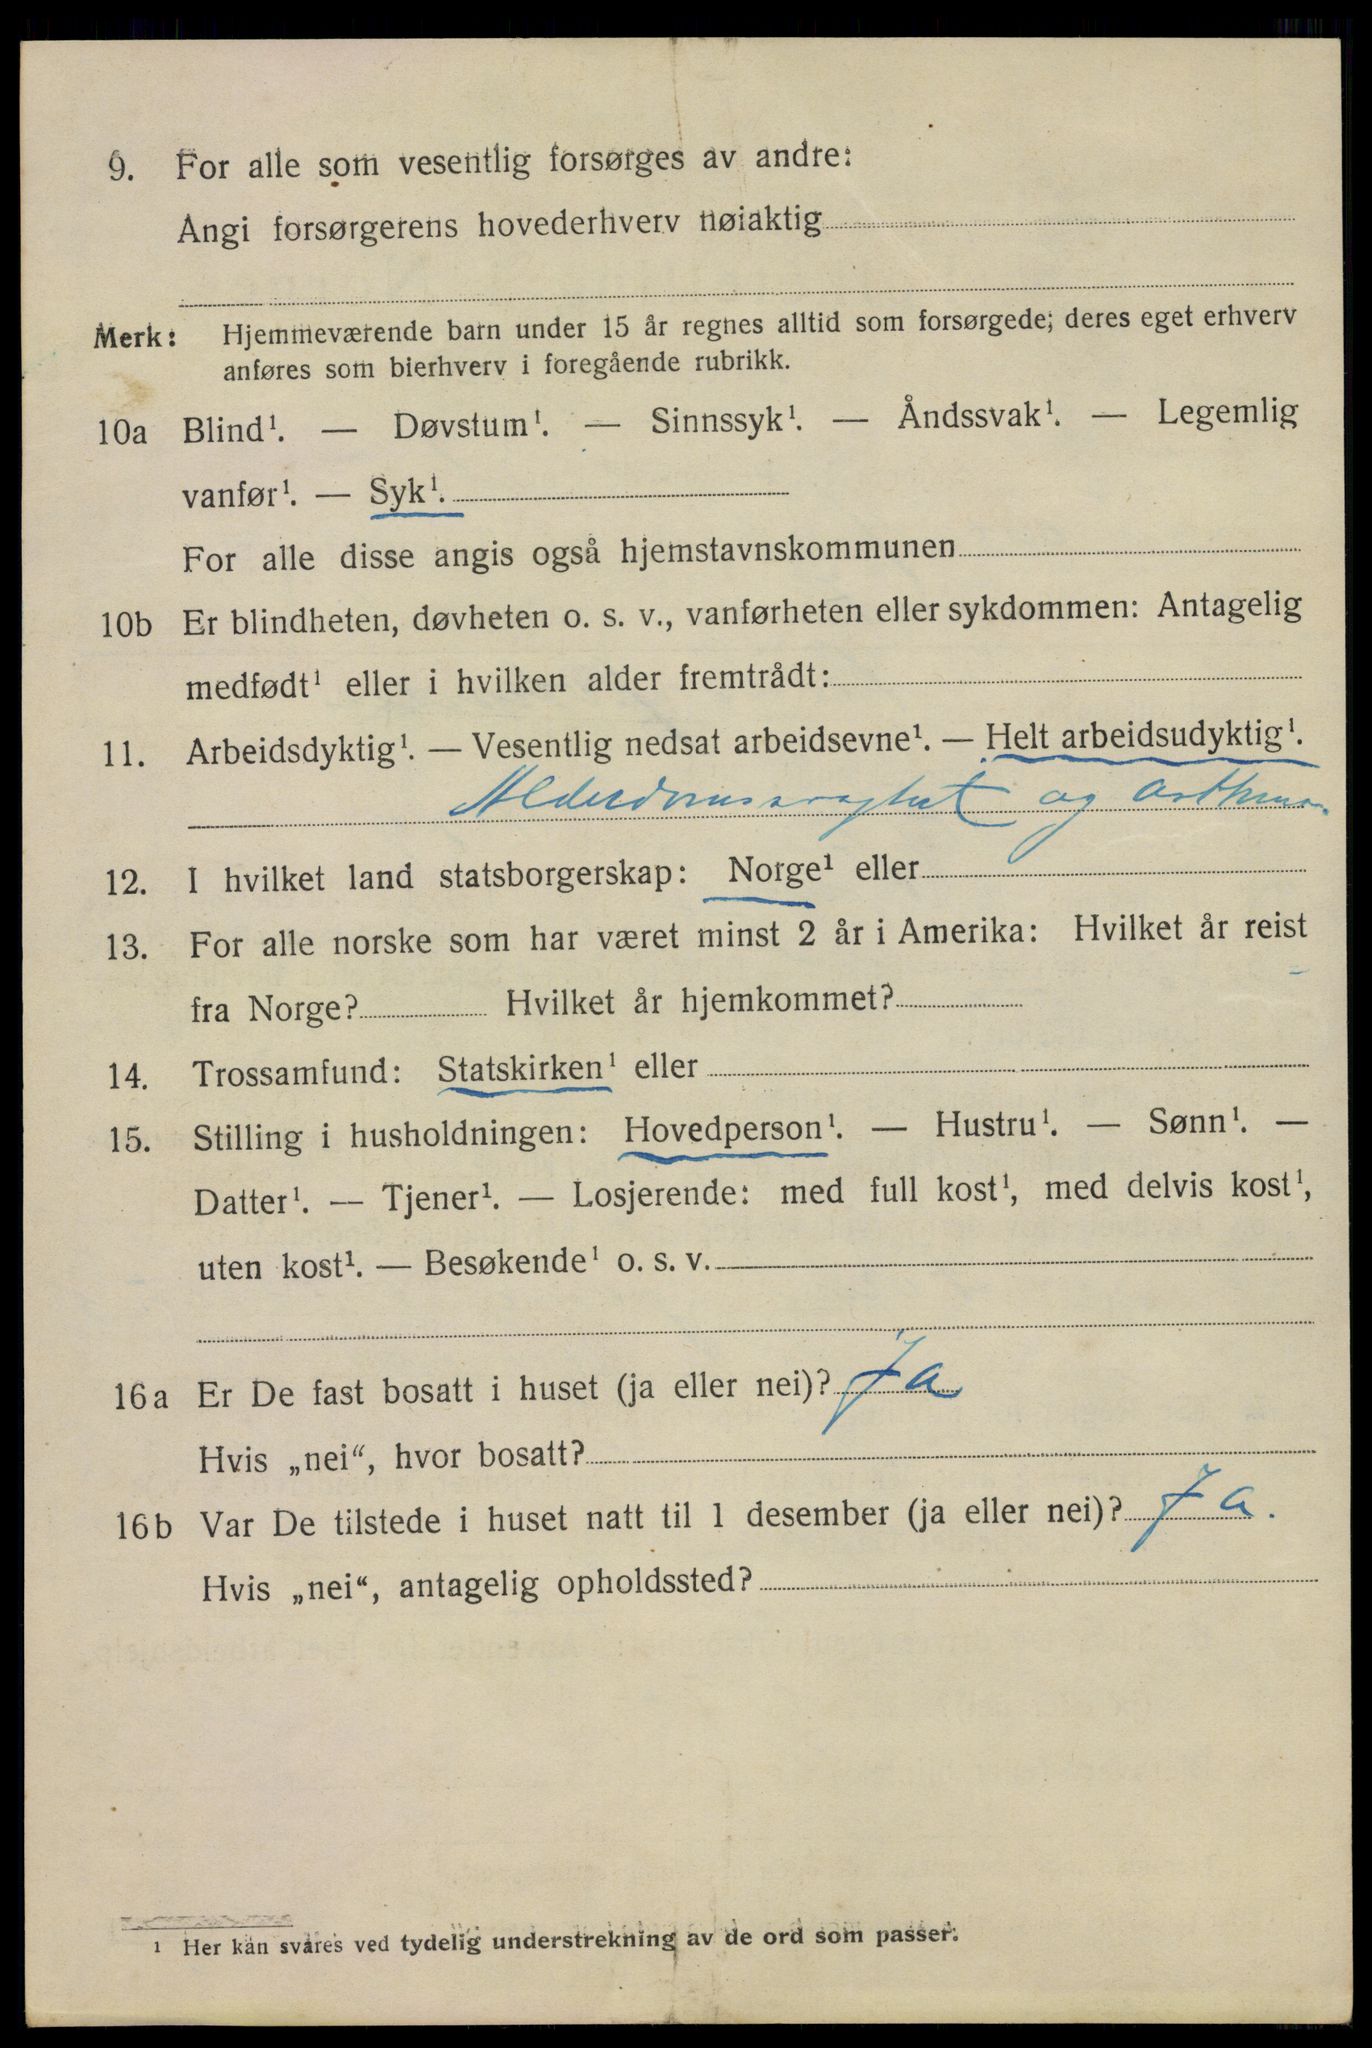 9. For alle som vesentlig forsørges av andre:
Angi forsørgerens hovederhverv nøiaktig
Merk: Hjemmeværende barn under 15 år regnes alltid som forsørgede; deres eget erhverv
anføres som bierhverv i foregående rubrikk.
10a Blind¹. — Døvstum¹. — Sinnssyk¹. — Åndssvak¹. — Legemlig
vanfør¹. — Syk¹.
For alle disse angis også hjemstavnskommunen
10b Er blindheten, døvheten o. s. v., vanførheten eller sykdommen: Antagelig
medfødt¹ eller i hvilken alder fremtrådt:
11. Arbeidsdyktig¹. — Vesentlig nedsat arbeidsevne¹. — Helt arbeidsudyktig¹.
Alderdomssvaghet og Asthma.
12. I hvilket land statsborgerskap: Norge¹ eller
13. For alle norske som har været minst 2 år i Amerika: Hvilket år reist
fra Norge? Hvilket år hjemkommet?
14. Trossamfund: Statskirken¹ eller
15. Stilling i husholdningen: Hovedperson¹. — Hustru¹. — Sønn¹. —
Datter¹. — Tjener¹. — Losjerende: med full kost¹, med delvis kost¹,
uten kost¹. — Besøkende¹ o. s. v.
16a Er De fast bosatt i huset (ja eller nei)? Ja
Hvis „nei“, hvor bosatt?
16b Var De tilstede i huset natt til 1 desember (ja eller nei)? Ja.
Hvis „nei“, antagelig opholdssted?
¹ Her kan svares ved tydelig understrekning av de ord som passer.